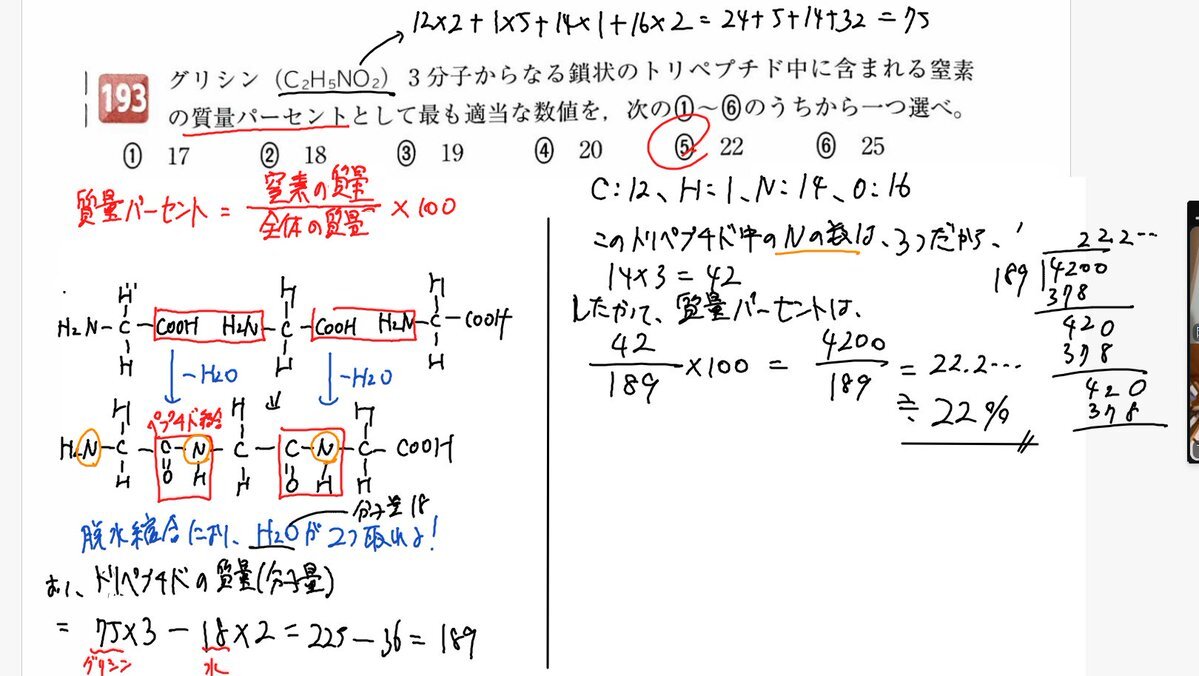 12×2+1×5+14×1+16×2=24+5+14+32=75
193 グリシン（C₂H₅NO₂）3分子からなる鎖状のトリペプチド中に含まれる窒素
の質量パーセントとして最も適当な数値を，次の①～⑥のうちから一つ選べ。
① 17 ② 18 ③ 19 ④ 20 ⑤ 22 ⑥ 25
質量パーセント = 窒素の質量/全体の質量 × 100
H H H
H₂N-C-COOH H₂N-C-COOH H₂N-C-COOH
H H H
-H₂O -H₂O
ペプチド結合
H H H
H₂N-C-C-N-C-C-N-C-COOH
H O H H O H H
分子量18
脱水縮合により、H₂Oが2つ取れる!
トリペプチドの質量(分子量)
= 75×3-18×2=225-36=189
グリシン 水
C:12、H=1、N=14、O:16
このトリペプチド中のNの数は、3つだから、
14×3=42
したがって、質量パーセントは、
42/189 ×100 = 4200/189 = 22.2…
≒ 22%
222…
189 4200
378
420
378
420
378